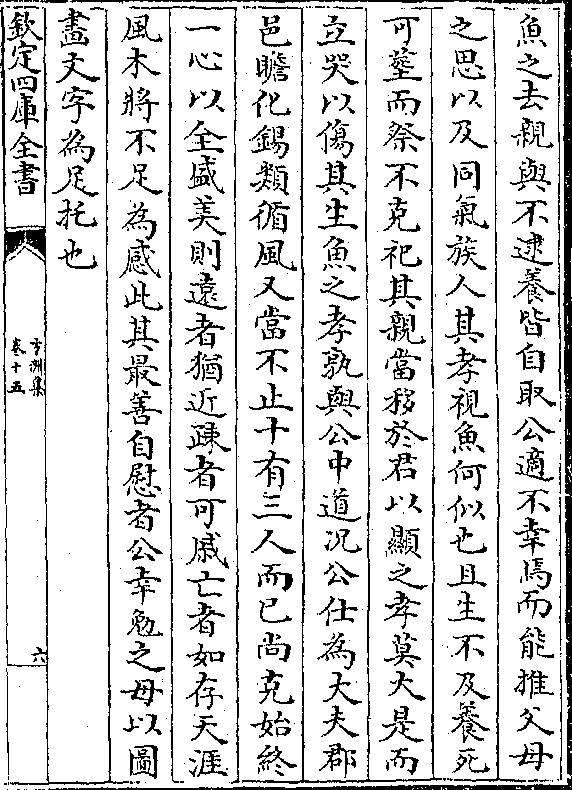 魚之去親與不逮養皆自取公適不幸焉而能推父母
之思以及同氣族人其孝視魚何似也且生不及養死
可塟而祭不克祀其親當移於君以顯之孝莫大是而
立哭以傷其生魚之孝孰與公中道况公仕為大夫郡
邑瞻化錫類循風又當不止十有三人而已尚克始終
一心以全盛美則遠者猶近疎者可戚亡者如存天涯
風木將不足為感此其最善自慰者公幸勉之毋以圖
畫文字為足托也
欽定四庫全書
方洲集
卷十五
六